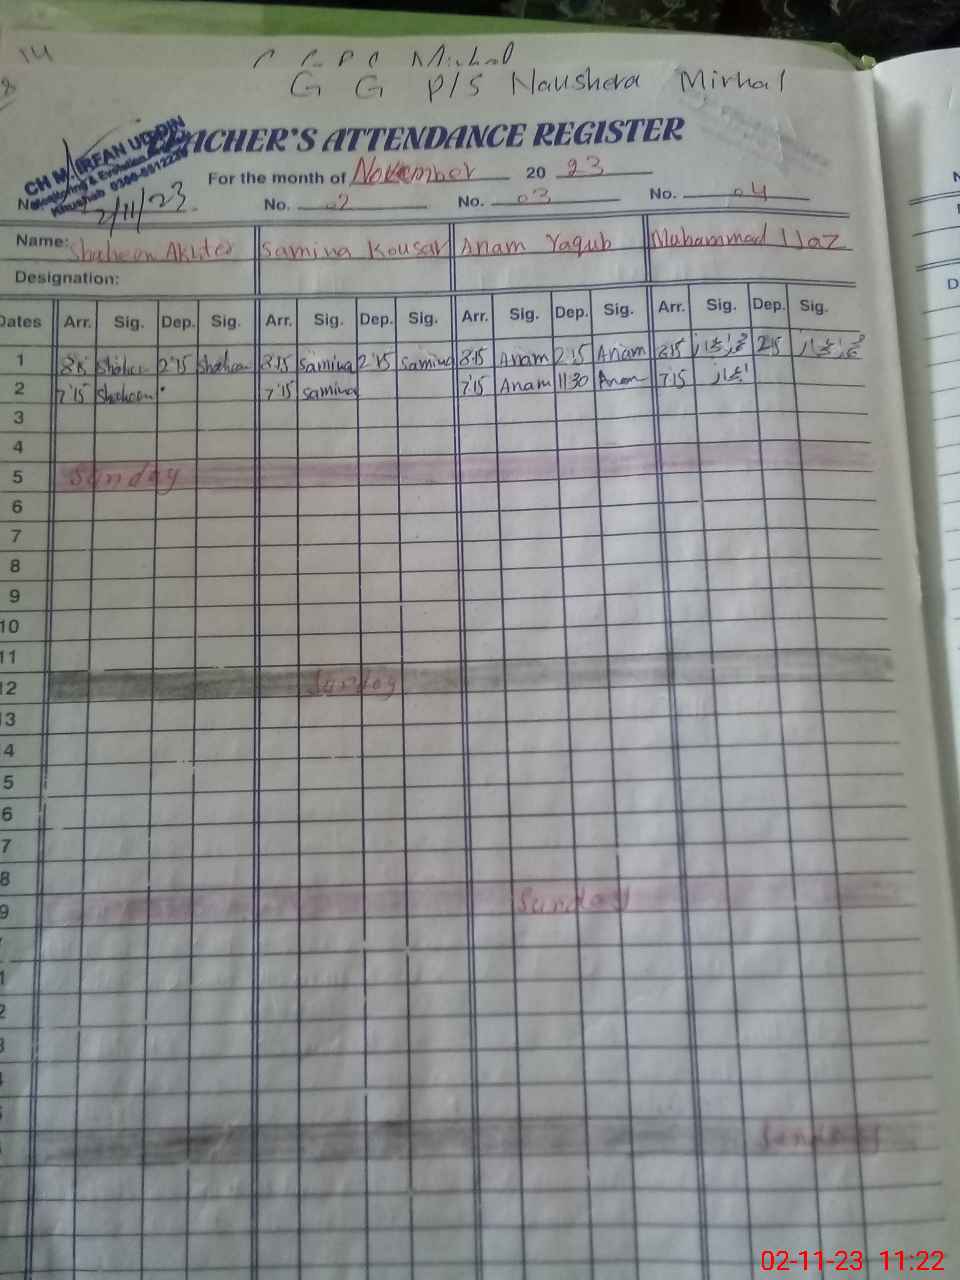 14
G G P/S Naushera Mirhal
TEACHER'S ATTENDANCE REGISTER
CH M. IRFAN UD DIN
Monitoring & Evalution
Khushab
2/11/23
For the month of November 20 23
No. 02 No. 03 No. 04
Name: Shaheen Akhter Samina Kousar Anam Yaqub Muhammad Ijaz
Designation:
Dates Arr. Sig. Dep. Sig. Arr. Sig. Dep. Sig. Arr. Sig. Dep. Sig. Arr. Sig. Dep. Sig.
1 8:15 Shaheen 2:15 Shaheen 8:15 Samina 2:15 Samina 8:15 Anam 2:15 Anam 8:15 2:15
2 7:15 Shaheen 7:15 Samina 7:15 Anam 11:30 Anam 7:15
3
4
5 Sunday
6
7
8
9
10
11
12 Sunday
3
4
5
6
7
8
9 Sunday
1
2
3
Sunday
02-11-23 11:22